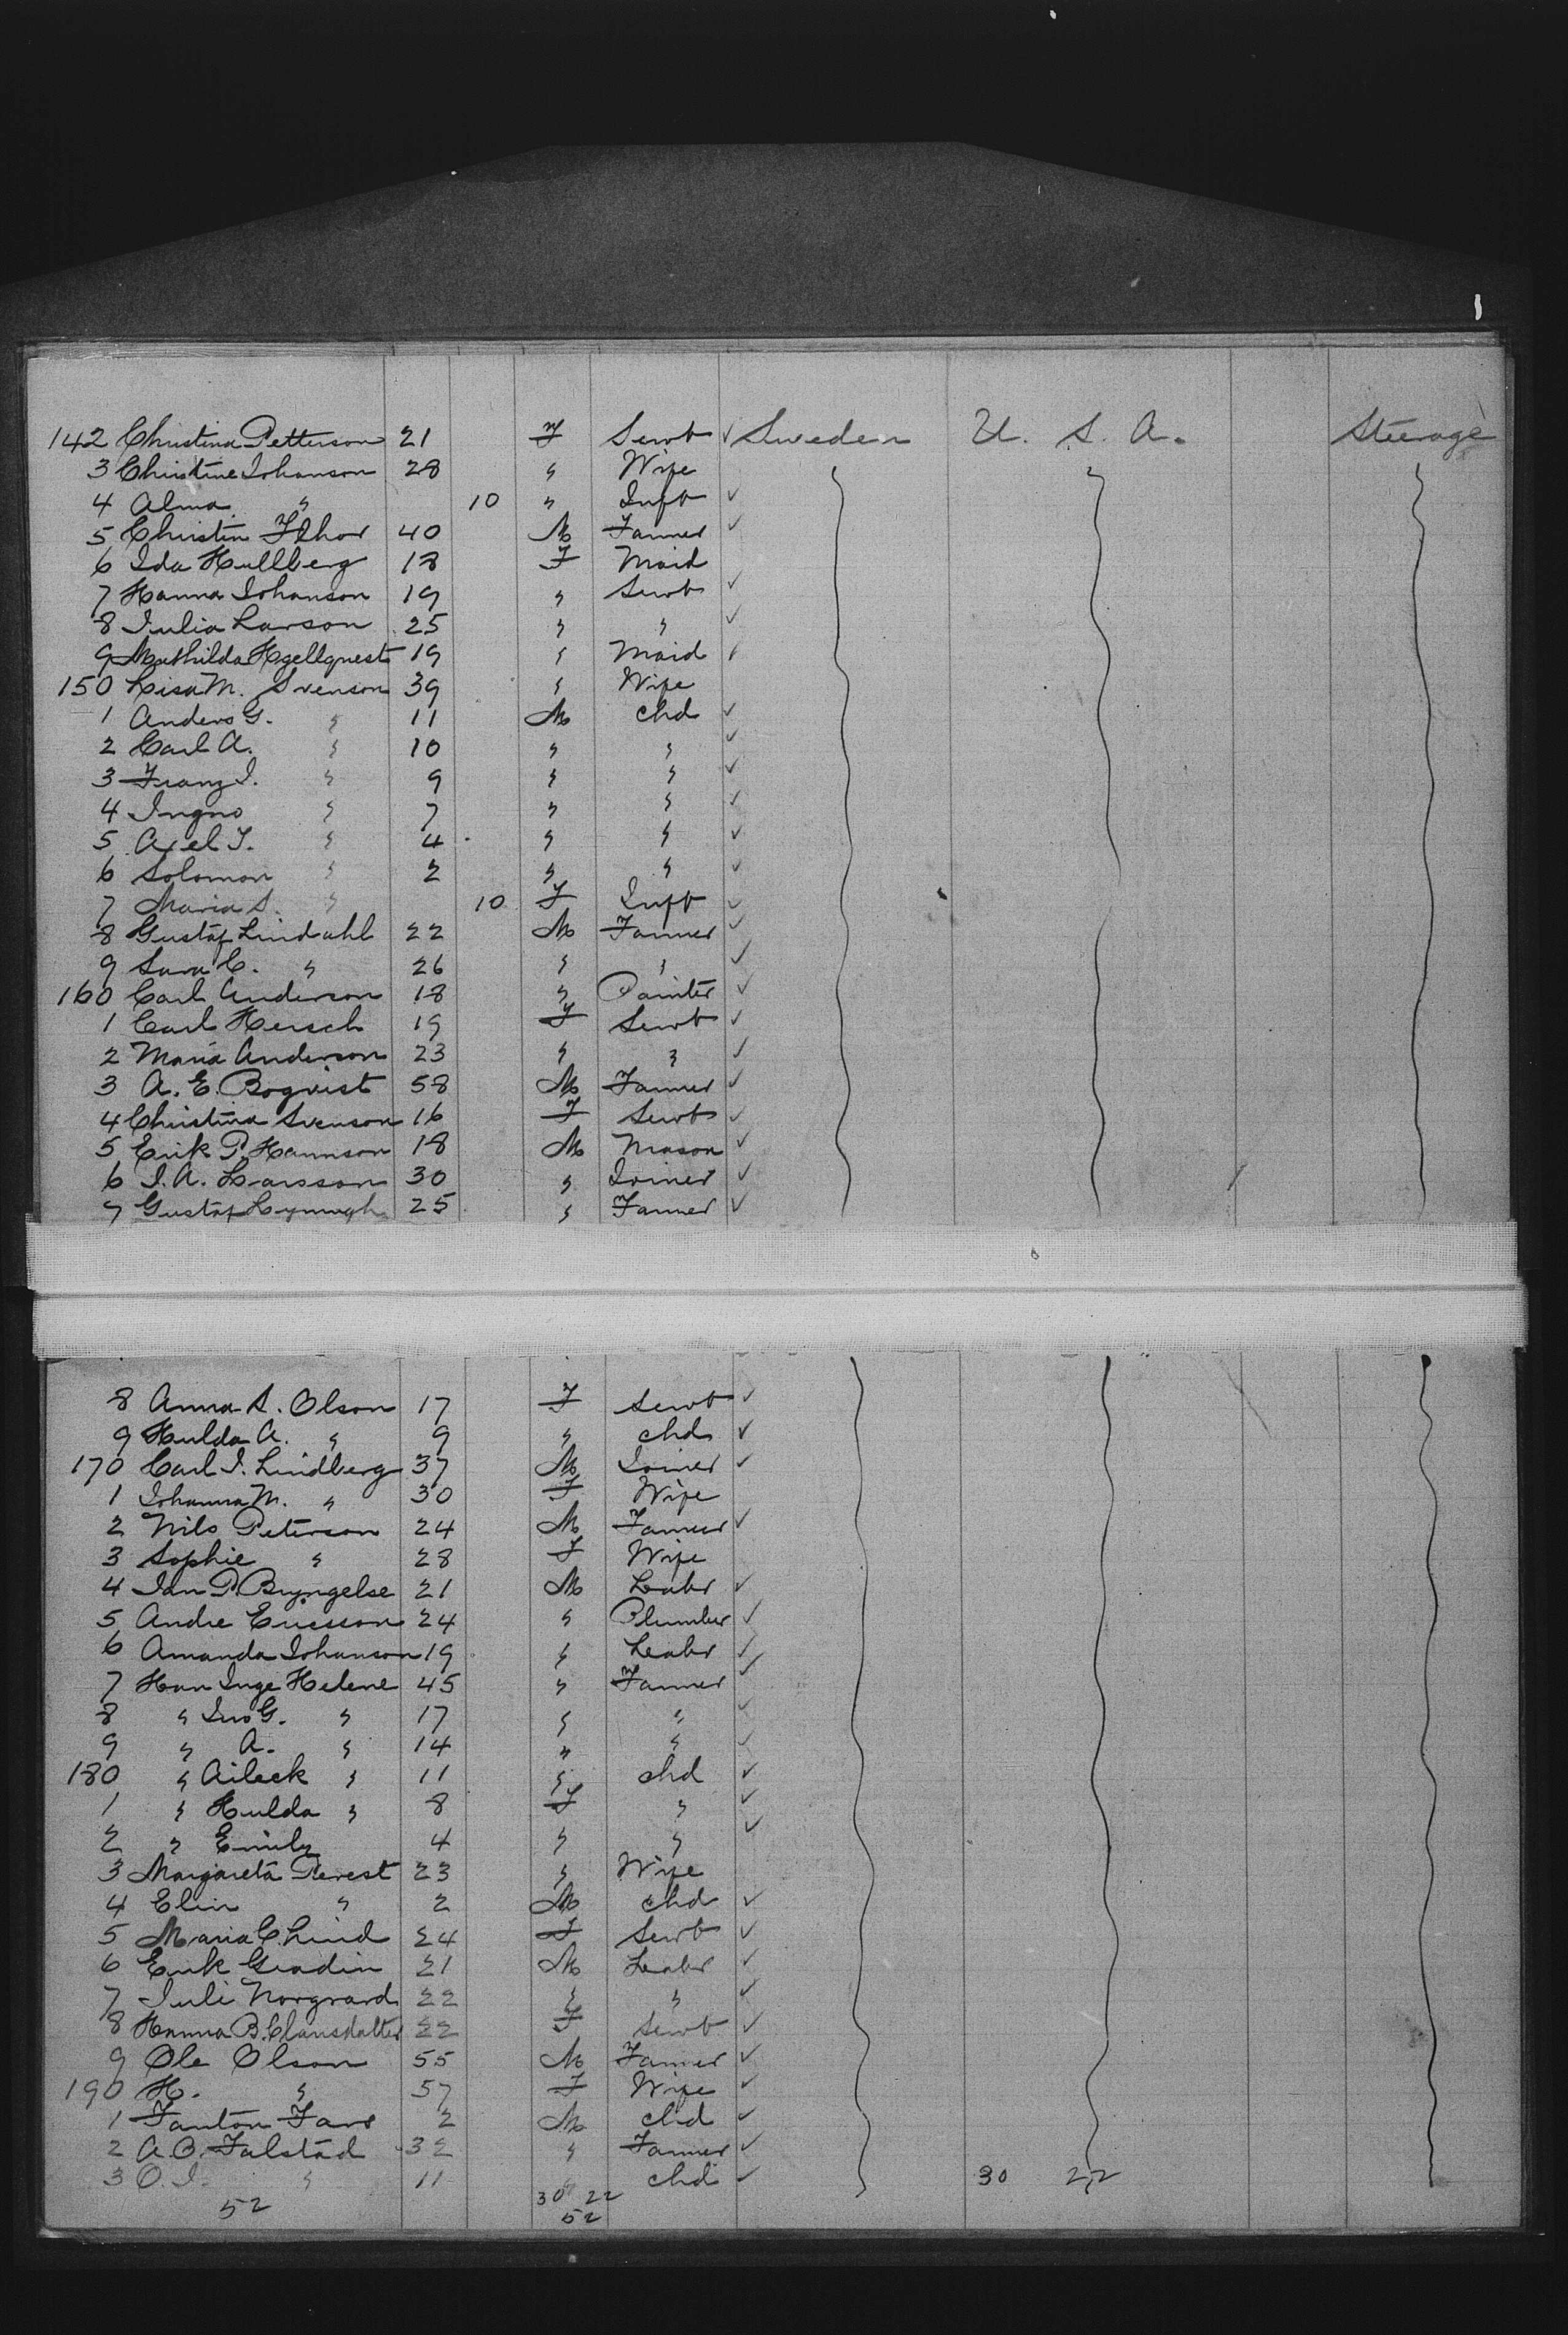 142 Christina Petterson 21 F Servt ✓ Sweden U. S. A. Steerage
3 Christine Johanson 28 " Wife
4 Alma " 10 " Inft ✓
5 Christin 40 M Farmer ✓
6 Ida Hullberg 18 F Maid
7 Hanna Johanson 19 " Servt ✓
8 Julia Larson 25 " " ✓
9 Mathilda Hgellquest 19 " Maid ✓
150 Lisa M. Svenson 39 " Wife
1 Anders G. " 11 M chd ✓
2 Carl A. " 10 " " ✓
3 Franz I. " 9 " " ✓
4 Ingno " 7 " " ✓
5 Axel T. " 4 " " ✓
6 Solomon " 2 " " ✓
7 Maria S. " 10 F Inft ✓
8 Gustaf Lindahl 22 M Farmer ✓
9 Sara C. " 26 " " ✓
160 Carl Anderson 18 " Painter ✓
1 Carl Hersch 19 F Servt ✓
2 Maria Anderson 23 " " ✓
3 A. E. Boqvist 58 M Farmer ✓
4 Christina Svenson 16 F Servt ✓
5 Erik P. Hannson 18 M Mason ✓
6 I. A. Larsson 30 " Joiner ✓
7 Gustaf 25 " Farmer ✓
8 Anna S. Olson 17 F Servt ✓
9 Hulda A. " 9 " chd ✓
170 Carl I. Lindberg 37 M Joiner ✓
1 Johanna M. " 30 F Wife
2 Nils Peterson 24 M Farmer ✓
3 Sophie " 28 F Wife
4 Jan P. Bryngelse 21 M Labr ✓
5 Andre Ericsson 24 " Plumber ✓
6 Amanda Johanson 19 " Labr ✓
7 Han Inge Helene 45 " Farmer ✓
8 " G. " 17 " " ✓
9 " A. " 14 " " ✓
180 " Aileck " 11 " chd ✓
1 " Hulda " 8 F " ✓
2 " Emily 4 " " ✓
3 Margareta Perest 23 " Wife
4 Elin " 2 M chd ✓
5 Maria C. Lind 24 F Servt ✓
6 Erik Gradin 21 M Labr ✓
7 Juli Norgvard 22 " " ✓
8 Hanna B. Clausdatter 22 F Servt ✓
9 Ole Olson 55 M Farmer ✓
190 H. " 57 F Wife ✓
1 Fanton Farr 2 M chd ✓
2 A. O. Falstad 32 " Farmer ✓
3 O. I. " 11 " chd ✓ 30 22
52 30 22
52